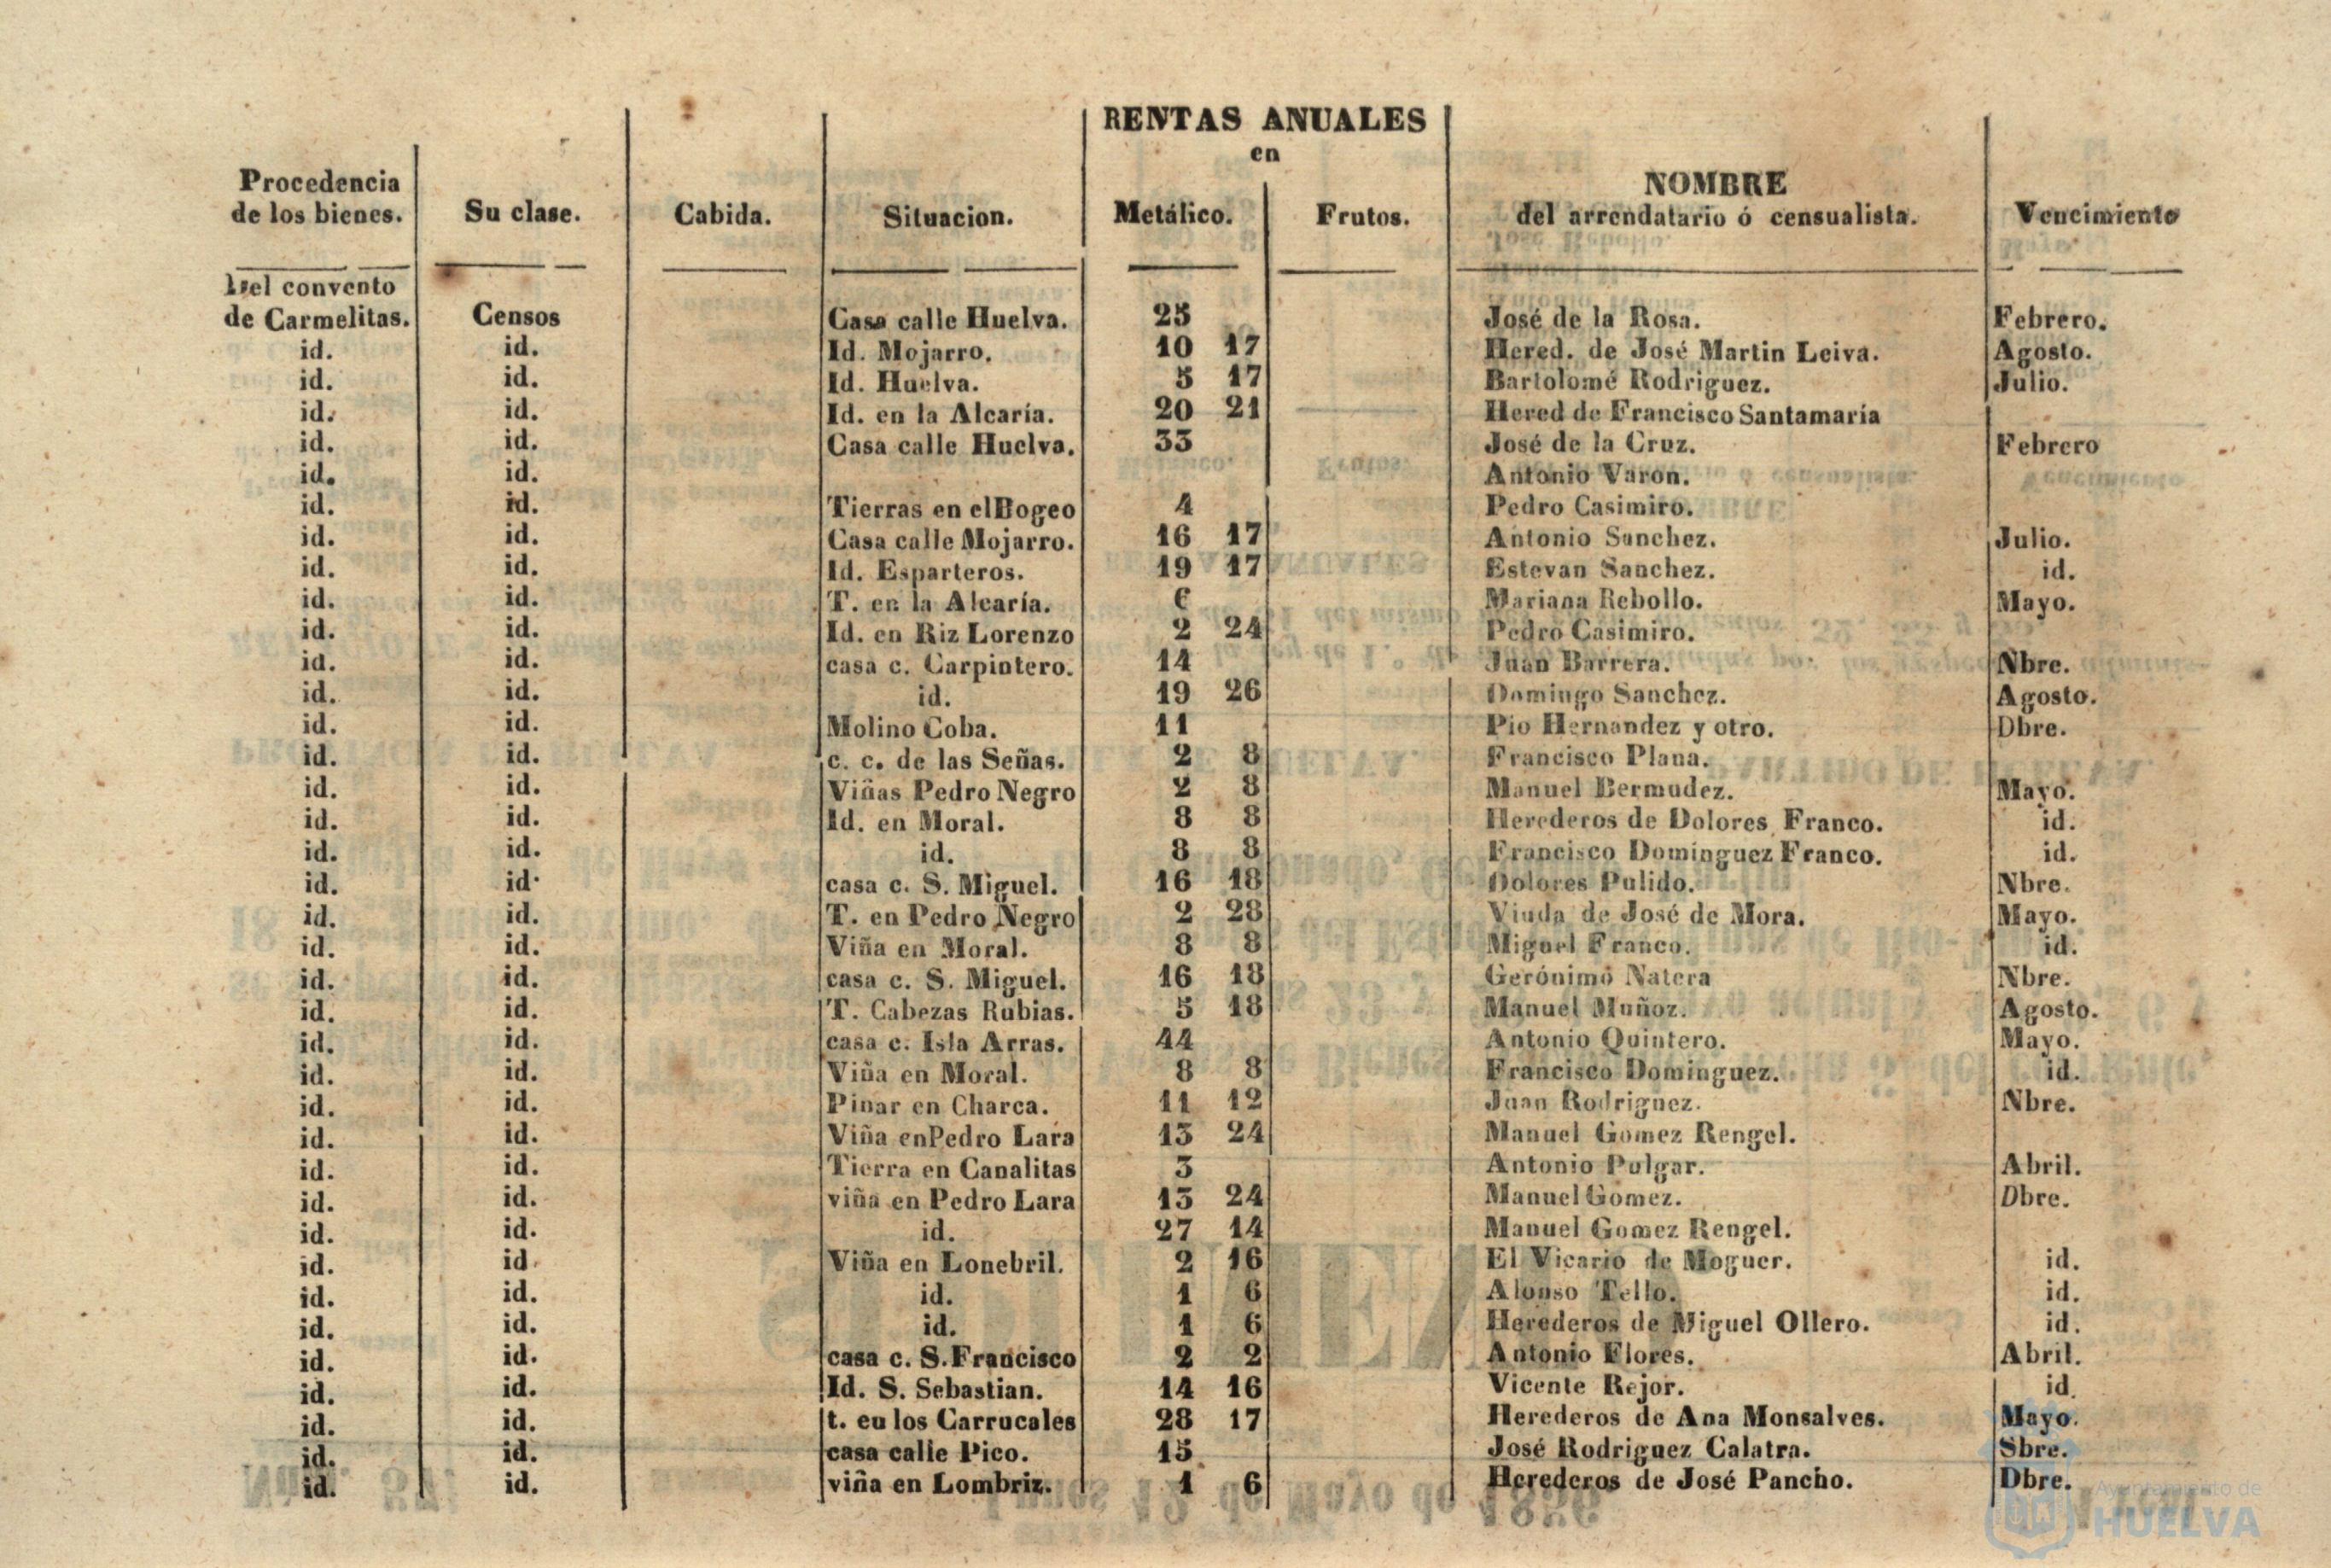 RENTAS ANUALES
en
Procedencia de los bienes. Su clase. Cabida. Situacion. Metálico. Frutos. NOMBRE del arrendatario ó censualista. Vencimiento
Del convento
de Carmelitas. Censos Casa calle Huelva. 25 José de la Rosa. Febrero.
id. id. Id. Mojarro. 10 17 Hered. de José Martin Leiva. Agosto.
id. id. Id. Huelva. 5 17 Bartolomé Rodriguez. Julio.
id. id. Id. en la Alcaría. 20 21 Hered de Francisco Santamaría
id. id. Casa calle Huelva. 33 José de la Cruz. Febrero
id. id. Antonio Varon.
id. id. Tierras en el Bogeo 4 Pedro Casimiro.
id. id. Casa calle Mojarro. 16 17 Antonio Sanchez. Julio.
id. id. Id. Esparteros. 19 17 Estevan Sanchez. id.
id. id. T. en la Alcaría. 6 Mariana Rebollo. Mayo.
id. id. Id. en Riz Lorenzo 2 24 Pedro Casimiro.
id. id. casa c. Carpintero. 14 Juan Barrera. Nbre.
id. id. id. 19 26 Domingo Sanchez. Agosto.
id. id. Molino Coba. 11 Pio Hernandez y otro. Dbre.
id. id. c. c. de las Señas. 2 8 Francisco Plana.
id. id. Viñas Pedro Negro 2 8 Manuel Bermudez. Mayo.
id. id. Id. en Moral. 8 8 Herederos de Dolores Franco. id.
id. id. id. 8 8 Francisco Domínguez Franco. id.
id. id. casa c. S. Miguel. 16 18 Dolores Pulido. Nbre.
id. id. T. en Pedro Negro 2 28 Viuda de José de Mora. Mayo.
id. id. Viña en Moral. 8 8 Miguel Franco. id.
id. id. casa c. S. Miguel. 16 18 Gerónimo Natera Nbre.
id. id. T. Cabezas Rubias. 5 18 Manuel Muñoz. Agosto.
id. id. casa c. Isla Arras. 44 Antonio Quintero. Mayo.
id. id. Viña en Moral. 8 8 Francisco Dominguez. id.
id. id. Pinar en Charca. 11 12 Juan Rodriguez. Nbre.
id. id. Viña en Pedro Lara 13 24 Manuel Gomez Rengel.
id. id. Tierra en Canalitas 3 Antonio Pulgar. Abril.
id. id. viña en Pedro Lara 13 24 Manuel Gomez. Dbre.
id. id. id. 27 14 Manuel Gomez Rengel.
id. id. Viña en Lonebril. 2 16 El Vicario de Moguer. id.
id. id. id. 1 6 Alonso Tello. id.
id. id. id. 1 6 Herederos de Miguel Ollero. id.
id. id. casa c. S. Francisco 2 2 Antonio Flores. Abril.
id. id. Id. S. Sebastian. 14 16 Vicente Rejor. id.
id. id. t. en los Carrucales 28 17 Herederos de Ana Monsalves. Mayo.
id. id. casa calle Pico. 15 José Rodriguez Calatra. Sbre.
id. id. viña en Lombriz. 1 6 Herederos de José Pancho. Dbre.
Ayuntamiento de
HUELVA